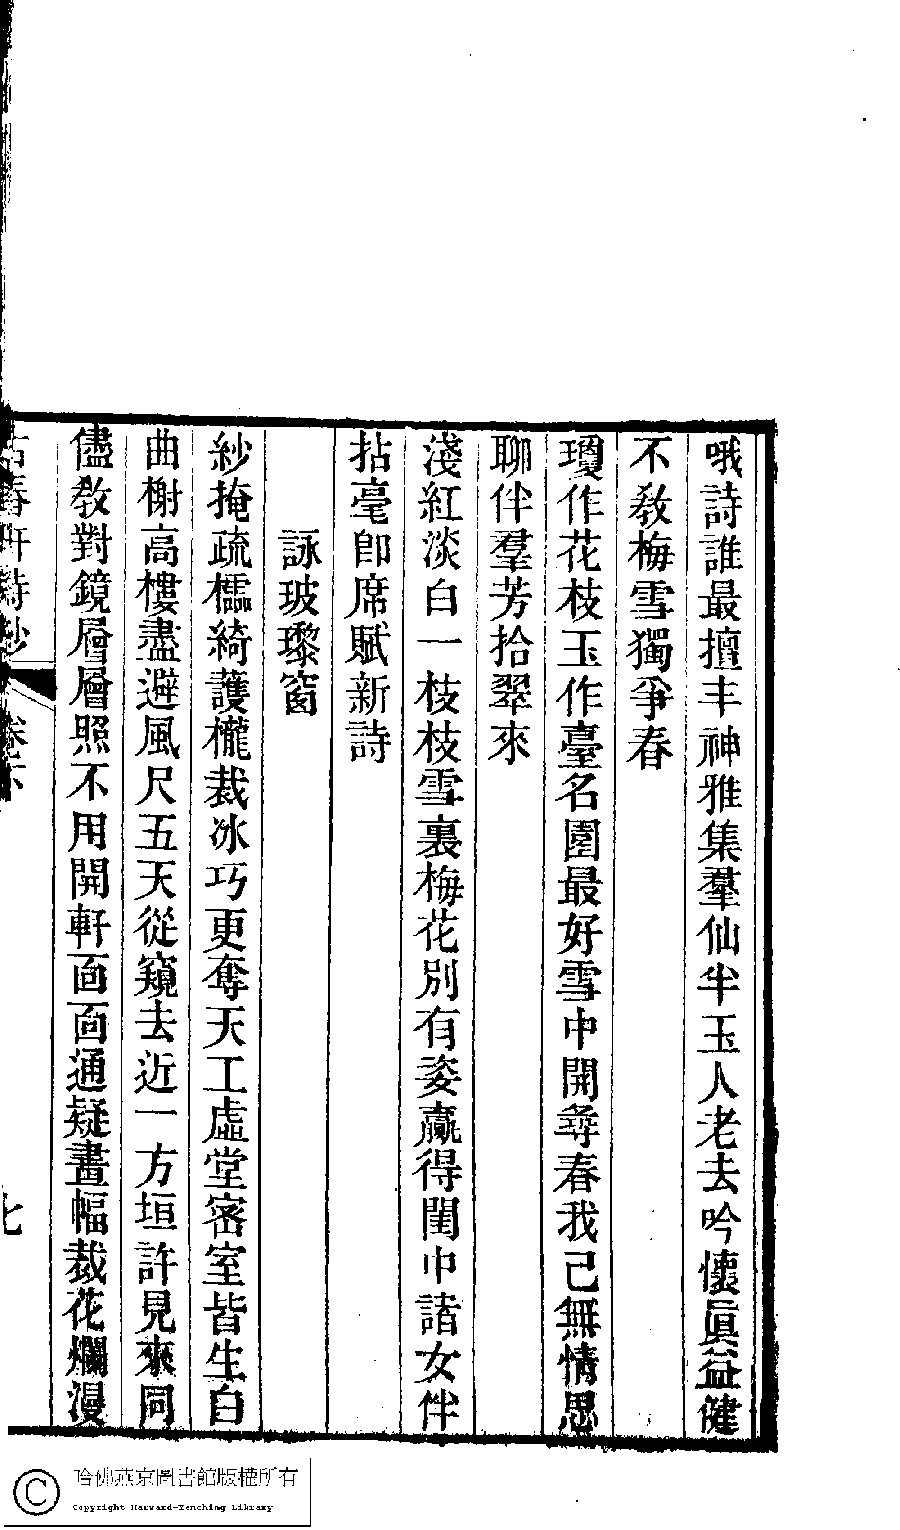 哦詩誰最擅丰神雅集羣仙半玉人老去吟懷眞益健
不教梅雪獨爭春
瓊作花枝玉作臺名園最好雪中開尋春我已無情思
聊伴羣芳拾翠來
淺紅淡白一枝枝雪裏梅花別有姿贏得閨中諸女伴
拈毫卽席賦新詩
詠玻瓈窗
紗掩疏櫺綺護櫳裁冰巧更奪天工虛堂密室皆生白
曲榭高樓盡避風尺五天從窺去近一方垣許見來同
儘教對鏡層層照不用開軒面面通疑畫幅裁花爛漫
春軒詩鈔
卷六
七
哈佛燕京圖書館版權所有
Copyright Harvard-Yenching Library